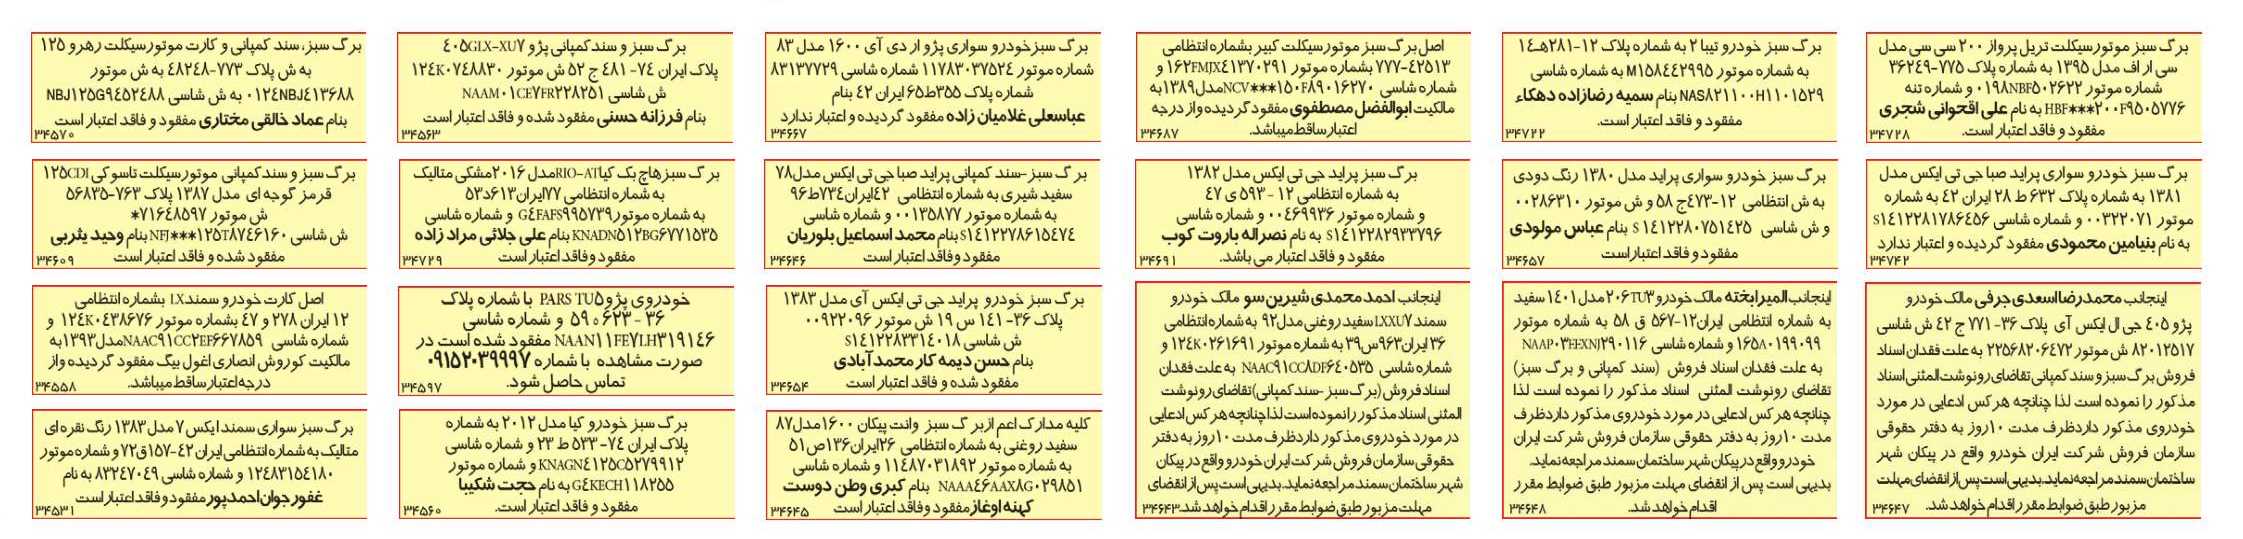 برگ سبز موتورسیکلت تریل پرواز ۲۰۰ سی سی مدل
سی ار اف مدل ۱۳۹۵ به شماره پلاک ۷۷۵-۳۶۲۴۹
شماره موتور ۰۱۹۸NBF۵۰۲۶۲۲ و شماره تنه
HBF***۲۰۰F۹۵۰۵۷۷۶ به نام علی اقحوانی شجری
مفقود و فاقد اعتبار است.
۳۴۷۲۸
برگ سبز خودرو تیبا ۲ به شماره پلاک ۱۲-۲۸۱هـ۱۴
به شماره موتور M۱۵۸۴۴۲۹۹۵ به شماره شاسی
NAS۸۲۱۱۰۰H۱۱۰۱۵۲۹ بنام سمیه رضازاده دهکاء
مفقود و فاقد اعتبار است.
۳۴۷۲۲
اصل برگ سبز موتورسیکلت کبیر بشماره انتظامی
۷۷۷-۴۲۵۱۳ بشماره موتور ۱۶۲FMJX۴۱۳۷۰۲۹۱ و
شماره شاسی NCV***۱۵۰F۸۹۰۱۶۲۷۰مدل۱۳۸۹به
مالکیت ابوالفضل مصطفوی مفقود گردیده و از درجه
اعتبارساقط میباشد.
۳۴۶۸۷
برگ سبزخودرو سواری پژو ار دی آی ۱۶۰۰ مدل ۸۳
شماره موتور ۱۱۷۸۳۰۳۷۵۲۴ شماره شاسی ۸۳۱۳۷۷۲۹
شماره پلاک ۳۵۵ط۶۵ ایران ۴۲ بنام
عباسعلی غلامیان زاده مفقود گردیده و اعتبار ندارد
۳۴۶۶۷
برگ سبز و سند کمپانی پژو ۴۰۵GLX-XU۷
پلاک ایران ۷۴- ۴۸۱ ج ۵۲ ش موتور ۱۲۴K۰۷۴۸۸۳۰
ش شاسی NAAM۰۱CE۷FR۲۲۸۲۵۱
بنام فرزانه حسنی مفقود شده و فاقد اعتبار است
۳۴۵۶۳
برگ سبز، سند کمپانی و کارت موتورسیکلت رهرو ۱۲۵
به ش پلاک ۷۷۳-۴۸۲۴۸ به ش موتور
۰۱۲۴NBJ۴۱۳۶۸۸ به ش شاسی NBJ۱۲۵G۹۴۵۲۴۸۸
بنام عماد خالقی مختاری مفقود و فاقد اعتبار است
۳۴۵۷۰
برگ سبز خودرو سواری پراید صبا جی تی ایکس مدل
۱۳۸۱ به شماره پلاک ۶۳۲ ط ۲۸ ایران ۴۲ به شماره
موتور ۰۰۳۲۲۰۷۱ و شماره شاسی S۱۴۱۲۲۸۱۷۸۶۴۵۶
به نام بنیامین محمودی مفقود گردیده و اعتبار ندارد
۳۴۷۴۲
برگ سبز خودرو سواری پراید مدل ۱۳۸۰ رنگ دودی
به ش انتظامی ۱۲-۴۷۳ج ۵۸ و ش موتور ۰۰۲۸۶۳۱۰
و ش شاسی S۱۴۱۲۲۸۰۷۵۱۴۲۵ بنام عباس مولودی
مفقود و فاقد اعتباراست
۳۴۶۵۷
برگ سبز پراید جی تی ایکس مدل ۱۳۸۲
به شماره انتظامی ۱۲ - ۵۹۳ ی ۴۷
و شماره موتور ۰۰۴۶۹۹۳۶ و شماره شاسی
S۱۴۱۲۲۸۲۹۳۳۷۹۶ به نام نصراله باروت کوب
مفقود و فاقد اعتبار می باشد.
۳۴۶۹۱
برگ سبز-سند کمپانی پراید صبا جی تی ایکس مدل۷۸
سفید شیری به شماره انتظامی ۴۲ایران۷۳۴ط۹۶
به شماره موتور ۰۰۱۳۵۸۷۷ و شماره شاسی
S۱۴۱۲۲۷۸۶۱۵۴۷۴بنام محمد اسماعیل بلوریان
مفقود وفاقد اعتبار است
۳۴۶۴۶
برگ سبزهاچ بک کیاRIO-ATمدل ۲۰۱۶مشکی متالیک
به شماره انتظامی ۷۷ایران۶۱۳د۵۳
به شماره موتورG۴FAFS۹۹۵۷۳۹ و شماره شاسی
KNADN۵۱۲BG۶۷۷۱۵۳۵بنام علی جلائی مراد زاده
مفقود وفاقد اعتبار است
۳۴۷۲۹
برگ سبز و سند کمپانی موتورسیکلت تاسوکی ۱۲۵CDI
قرمز گوجه ای مدل ۱۳۸۷ پلاک ۷۶۳-۵۶۸۳۵
ش موتور ۷۱۶۴۸۵۹۷*
ش شاسی NFJ***۱۲۵T۸۷۴۶۱۶۰بنام وحید یثربی
مفقود شده و فاقد اعتبار است
۳۴۶۰۹
اینجانب محمدرضااسعدی جرفی مالک خودرو
پژو ۴۰۵ جی ال ایکس آی پلاک ۳۶- ۷۷۱ ج ۴۲ ش شاسی
۸۲۰۱۲۵۱۷ ش موتور ۲۲۵۶۸۲۰۶۴۷۲ به علت فقدان اسناد
فروش برگ سبز و سند کمپانی تقاضای رونوشت المثنی اسناد
مذکور را نموده است لذا چنانچه هر کس ادعایی در مورد
خودروی مذکور داردظرف مدت ۱۰روز به دفتر حقوقی
سازمان فروش شرکت ایران خودرو واقع در پیکان شهر
ساختمان سمند مراجعه نماید.بدیهی است پس از انقضای مهلت
مزبور طبق ضوابط مقرر اقدام خواهد شد.
۳۴۶۴۷
اینجانب المیرابخته مالک خودرو ۲۰۶TU۳مدل ۱۴۰۱ سفید
به شماره انتظامی ایران۱۲-۵۶۷ ق ۵۸ به شماره موتور
۱۶۵A۰۱۹۹۰۹۹ و شماره شاسی NAAP۰۳FEXNJ۲۹۰۱۱۶
به علت فقدان اسناد فروش (سند کمپانی و برگ سبز)
تقاضای رونوشت المثنی اسناد مذکور را نموده است لذا
چنانچه هر کس ادعایی در مورد خودروی مذکور داردظرف
مدت ۱۰روز به دفتر حقوقی سازمان فروش شرکت ایران
خودرو واقع در پیکان شهر ساختمان سمند مراجعه نماید.
بدیهی است پس از انقضای مهلت مزبور طبق ضوابط مقرر
اقدام خواهد شد.
۳۴۶۴۸
اینجانب احمد محمدی شیرین سو مالک خودرو
سمند LXXU۷سفید روغنی مدل۹۲ به شماره انتظامی
۳۶ایران۹۶۳س۳۹ به شماره موتور ۱۲۴K۰۲۶۱۶۹۱ و
شماره شاسی NAAC۹۱CC۸DF۶۴۰۵۳۵ به علت فقدان
اسناد فروش (برگ سبز -سند کمپانی)تقاضای رونوشت
المثنی اسناد مذکور رانموده است لذا چنانچه هر کس ادعایی
در مورد خودروی مذکور داردظرف مدت ۱۰روز به دفتر
حقوقی سازمان فروش شرکت ایران خودرو واقع در پیکان
شهر ساختمان سمند مراجعه نماید.بدیهی است پس از انقضای
مهلت مزبور طبق ضوابط مقرر اقدام خواهد شد.
۳۴۶۴۳
برگ سبز خودرو پراید جی تی ایکس آی مدل ۱۳۸۳
پلاک ۳۶- ۱۴۱ س ۱۹ ش موتور ۰۰۹۲۲۰۹۶
ش شاسی S۱۴۱۲۲۸۳۳۱۴۰۱۸
بنام حسن دیمه کار محمدآبادی
مفقود شده و فاقد اعتبار است
۳۴۶۵۴
خودروی پژوPARS TU۵ با شماره پلاک
۳۶ - ۶۲۳ ه ۵۹ و شماره شاسی
NAAN۱۱FE۷LH۳۱۹۱۴۶ مفقود شده است در
صورت مشاهده با شماره ۰۹۱۵۲۰۳۹۹۹۷
تماس حاصل شود.
۳۴۵۹۷
اصل کارت خودرو سمندLX بشماره انتظامی
۱۲ ایران ۲۷۸ و ۴۷ بشماره موتور ۱۲۴K۰۴۳۸۶۷۶ و
شماره شاسی NAAC۹۱CC۲EF۶۶۷۸۵۹مدل۱۳۹۳به
مالکیت کوروش انصاری اغول بیگ مفقود گردیده واز
درجه اعتبار ساقط میباشد.
۳۴۵۵۸
کلیه مدارک اعم ازبرگ سبز وانت پیکان ۱۶۰۰مدل۸۷
سفید روغنی به شماره انتظامی ۳۶ایران۱۳۶ص۵۱
به شماره موتور ۱۱۴۸۷۰۳۱۸۹۲ و شماره شاسی
NAAA۴۶AAX۸G۰۲۹۸۵۱ بنام کبری وطن دوست
کهنه اوغاز مفقود وفاقد اعتبار است
۳۴۶۴۵
برگ سبز خودرو کیا مدل ۲۰۱۲ به شماره
پلاک ایران ۷۴- ۵۳۳ ط ۲۳ و شماره شاسی
KNAGN۴۱۲۵C۵۲۷۹۹۱۲و شماره موتور
G۴KECH۱۱۸۲۵۵به نام حجت شکیبا
مفقود و فاقد اعتبار است.
۳۴۵۶۰
برگ سبز سواری سمند ایکس ۷ مدل ۱۳۸۳ رنگ نقره ای
متالیک به شماره انتظامی ایران ۴۲-۱۵۷ق۷۲ و شماره موتور
۱۲۴۸۳۱۵۴۱۸۰ و شماره شاسی ۸۳۲۴۷۰۴۹ به نام
غفور جوان احمدپور مفقود و فاقد اعتبار است
۳۴۵۳۱